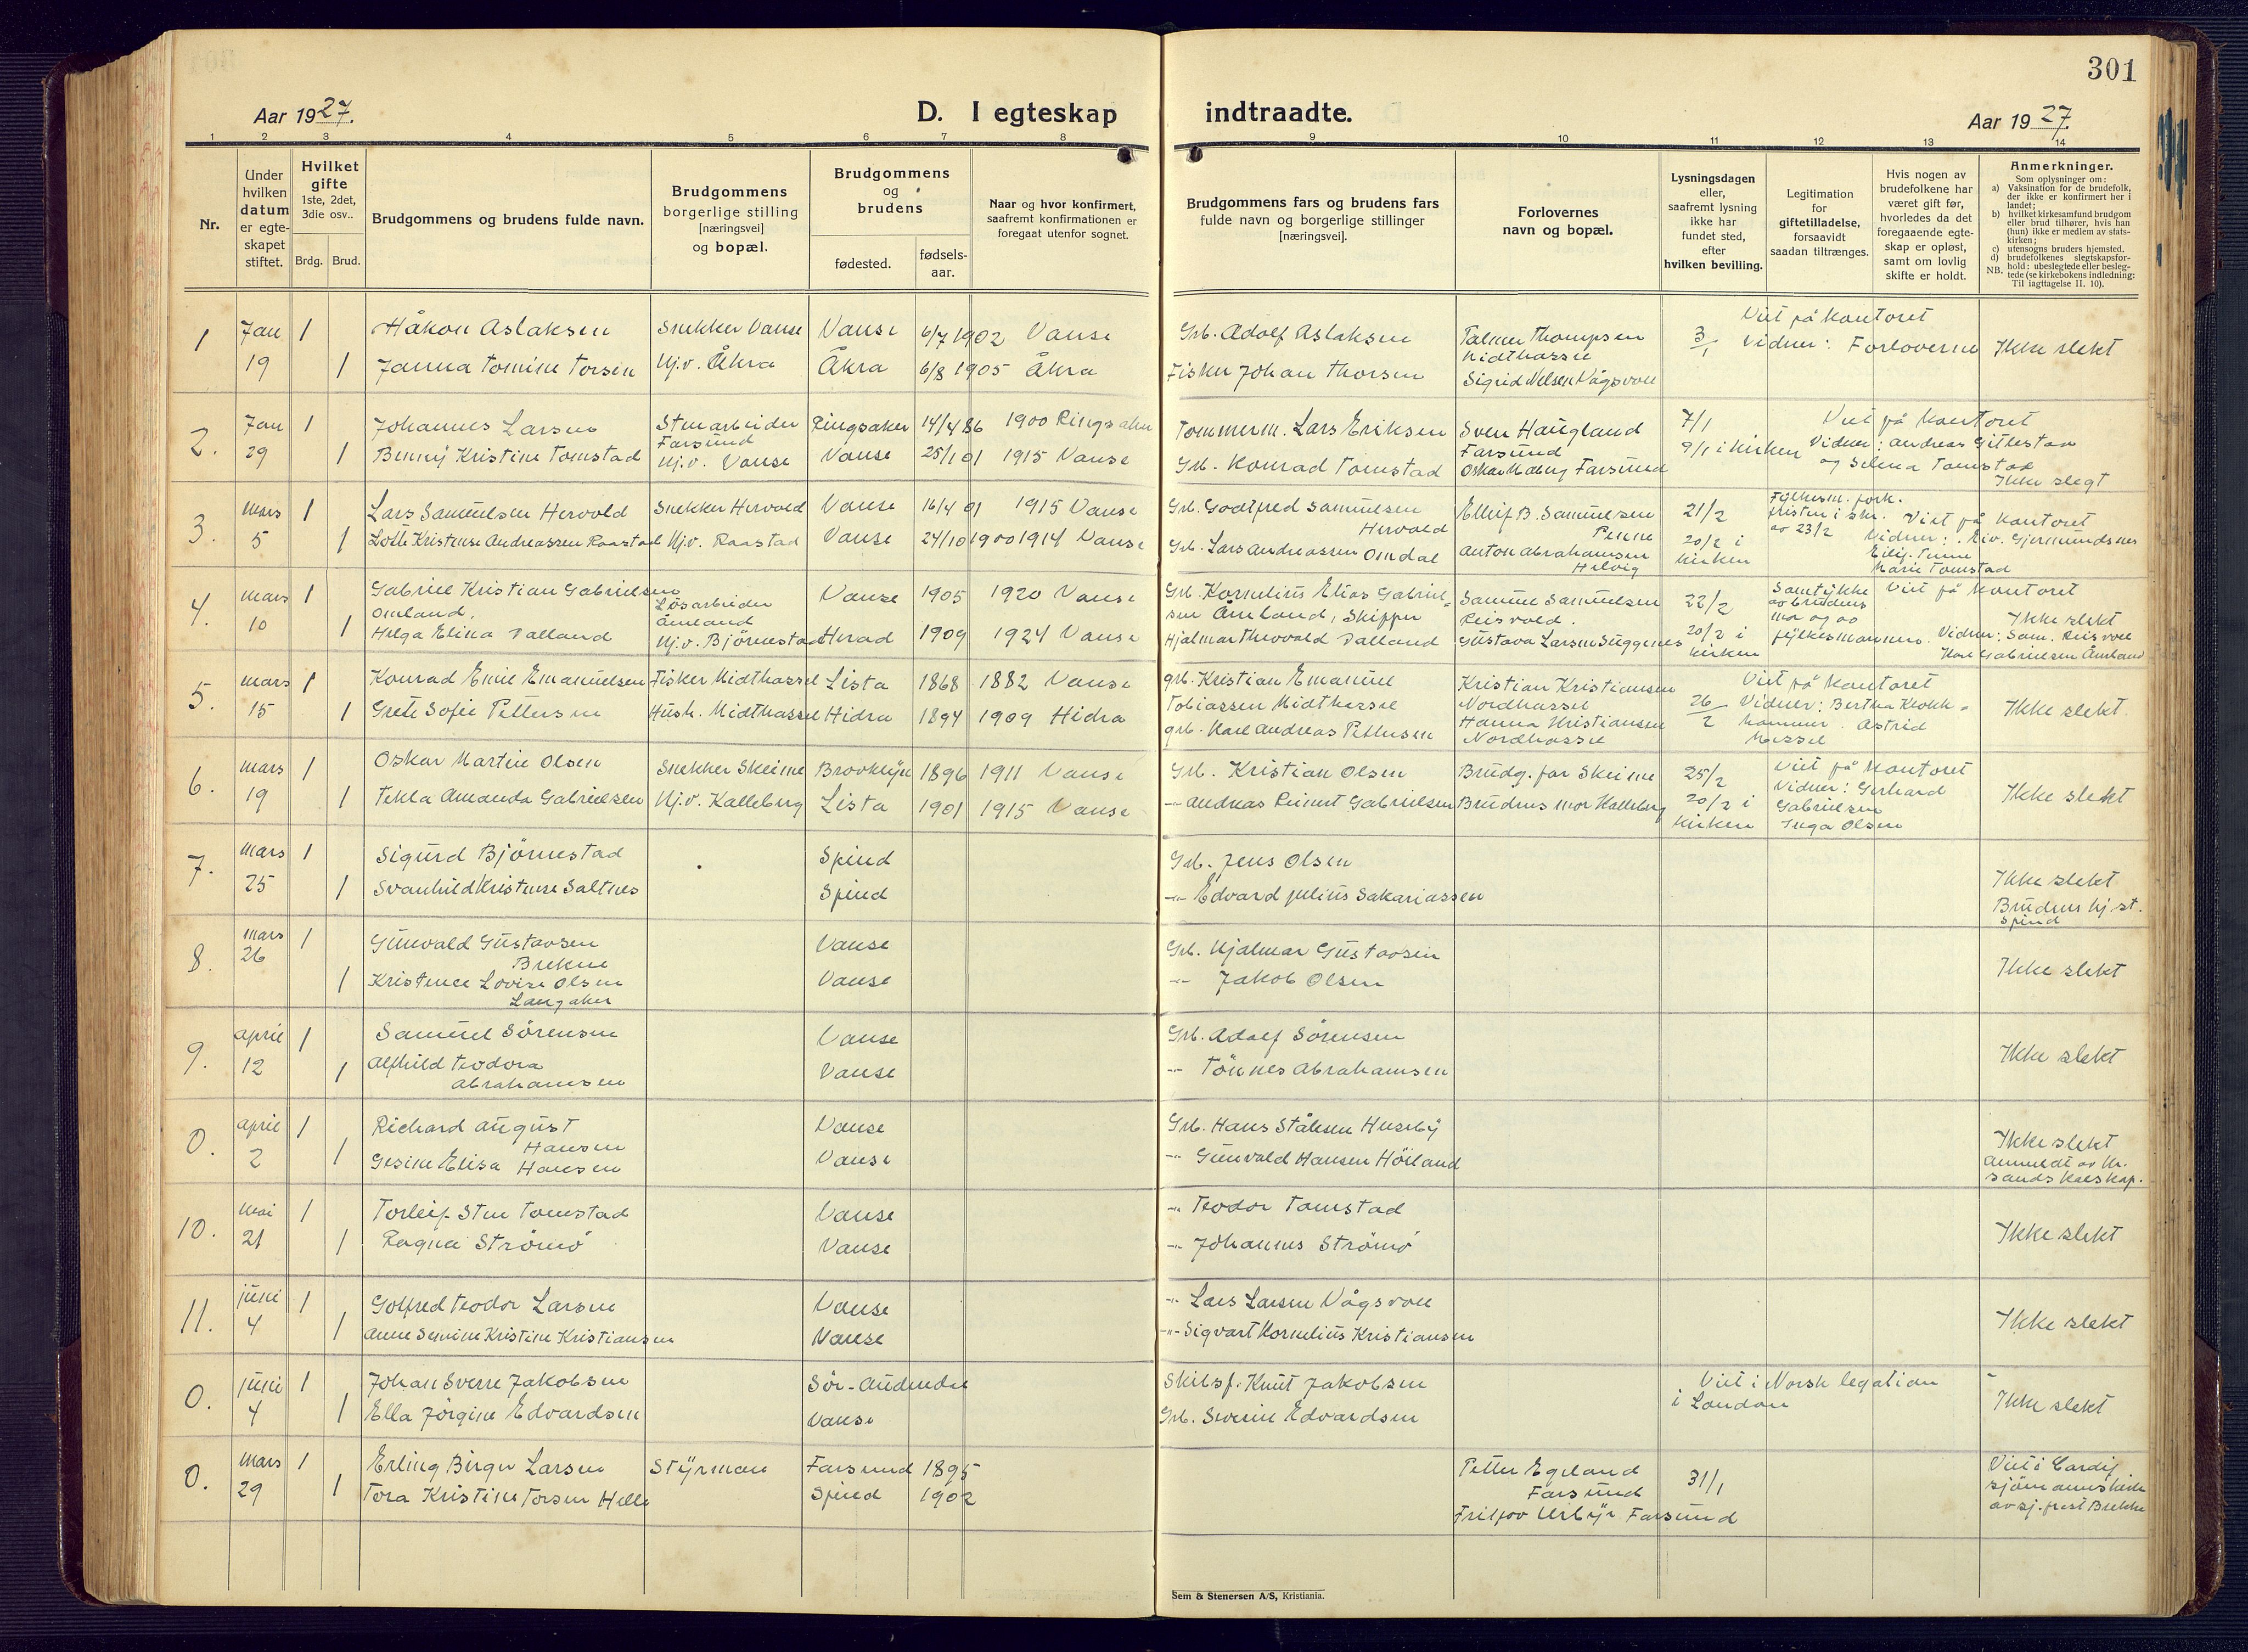 301
Aar 1927.
D. I egteskap indtraadte.
Aar 1927
1 2 3 4 5 6 7 8 9 10 11 12 13 14
Nr.
Under hvilken datum er egteskapet stiftet.
Hvilket gifte 1ste, 2det, 3die osv..
Brdg. Brud.
Brudgommens og brudens fulde navn.
Brudgommens borgerlige stilling [næringsvei] og bopæl.
Brudgommens og brudens
fødested.
fødselsaar.
Naar og hvor konfirmert, saafremt konfirmationen er foregaat utenfor sognet.
Brudgommens fars og brudens fars fulde navn og borgerlige stillinger [næringsvei].
Forlovernes navn og bopæl.
Lysningsdagen eller, saafremt lysning ikke har fundet sted, efter hvilken bevilling.
Legitimation for giftetilladelse, forsaavidt saadan tiltrænges.
Hvis nogen av brudefolkene har været gift før, hvorledes da det foregaaende egteskap er opløst, samt om lovlig skifte er holdt.
Anmerkninger.
Som oplysninger om:
a) Vaksination for de brudefolk, der ikke er konfirmert her i landet;
b) hvilket kirkesamfund brudgom eller brud tilhører, hvis han (hun) ikke er medlem av statskirken;
c) utensogns bruders hjemsted.
d) brudefolkenes slegtskapsforhold: ubeslegtede eller beslegtede (se kirkebokens indledning: NB. Til iagttagelse II. 10).
1 Jan 19 1 Håkon Aslaksen Snekker Vanse Vanse 6/7 1902 Vanse Grb. Adolf Aslaksen Palmer Thompsen Midthassel 3/1 Viet på kontoret Vidner: Forloverne Ikke slekt
1 Janna Tomine Torsen Hj.v. Åkra Åkra 6/8 1905 Åkra Fisker Johan Thorsen Sigrid Nelsen Vågsvoll
2. Jan 29 1 Johannes Larsen Stenarbeider Farsund Ringsaker 14/4 86 1900 Ringsaker Tømmerm. Lars Eriksen Sven Haugland Farsund 7/1 Viet på kontoret
1 Benny Kristine Tomstad Hj.v. Vanse Vanse 25/1 01 1915 Vanse Grb. Konrad Tomstad Oskar Moberg Farsund 9/1 i kirken Vidner: Andreas Gitlestad og Selena Tomstad Ikke slegt
3. mars 5 1 Lars Samuelsen Hervold Snekker Hervold Vanse 16/4 01 1915 Vanse Grb. Godtfred Samuelsen Hervold Ellief B. Samuelsen Penne 21/2 Fylkesm. fork. fristen i skr. av 23/2 Viet på kontoret
1 Lotte Kristense Andreassen Raastad Hj.v. Raastad Vanse 24/10 1900 1914 Vanse Grb. Lars Andreassen Omdal Anton Abrahamsen Helvig 20/2 i kirken Vidner: Marie Tomstad
4. mars 10 1 Gabriel Kristian Gabrielsen Omland, Løsarbeider Åmland Vanse 1905 1920 Vanse Grb. Kornelius Elias Gabrielsen Åmland, Skipper Samuel Samuelsen Reisvold. 22/2 Samtykke av brudens mor og av fylkesmannen. Viet på kontoret Ikke slekt
1 Helga Elina Dalland Hj.v. Björnestad Herad 1909 1924 Vanse Hjalmar Thorvald Dalland Gustava Larsen Suggenes 20/2 i kirken Vidner: Sam. Reisvoll Karl Gabrielsen Åmland
5. mars 15 1 Konrad Emil Emanuelsen Fisker Midthassel Lista 1868 1882 Vanse grb. Kristian Emanuel Tobiassen Midthassel Kristian Kristiansen Nordhassel 26/2 Viet på kontoret
1 Grete Sofie Pettersen Hush. Midthassel Hidra 1894 1909 Hidra grb. Karl Andreas Pettersen Hanna Kristiansen Nordhassel Vidner: Bertha Klokkhammer. Astrid Ikke slekt
6. mars 19 1 Oskar Martin Olsen Snekker Skeime Brooklyn 1896 1911 Vanse Grb. Kristian Olsen Brudg. far Skeime 25/2 Viet på kontoret
1 Tekla Amanda Gabrielsen Hj.v. Kalleberg Lista 1901 1915 Vanse -"- Andreas Reinert Gabrielsen Brudens mor Kalleberg 20/2 i kirken Vidner: Gerhard Gabrielsen Inga Olsen Ikke slekt
7. mars 25 1 Sigurd Björnestad Spind Grb. Jens Olsen
1 Svanhild Kristense Saltnes Spind -"- Edvard Julius Sakariassen Ikke slekt Brudens hj.st. Spind
8. mars 26 1 Gunvald Gustavsen Brekne Vanse Grb. Hjalmar Gustavsen
1 Kristence Lovise Olsen Langaker Vanse -"- Jakob Olsen Ikke slekt
9. april 12 1 Samuel Sörensen Vanse Grb. Adolf Sörensen
1 Alfhild Teodora Abrahamsen Vanse -"- Tönnes Abrahamsen Ikke slekt
0. april 2 1 Richard August Hansen Vanse Grb. Hans Ståhlsen Huseby
1 Gesine Elisa Hansen Vanse -"- Gunvald Hansen Höiland Ikke slekt anmeldt av Kr.sands
10. mai 21 1 Torleif Sten Tomstad Vanse -"- Teodor Tomstad
1 Ragna Strömö Vanse -"- Johannes Strömö Ikke slekt
11. juni 4 1 Golfred Teodor Larsen Vanse -"- Lars Larsen Vågsvoll
1 Anne Servine Kristine Kristiansen Vanse -"- Sigvart Kornelius Kristiansen Ikke slekt
0. juni 4 1 Johan Sverre Jakobsen Sör-Audnedal Skibsf. Knut Jakobsen Viet i Norsk legation i London
1 Ella Jörgine Edvardsen Vanse Grb. Severin Edvardsen Ikke slekt
0. mars 29 1 Erling Birger Larsen Styrman Farsund 1895 Petter Egeland Farsund 31/1 Viet i Cardif sjömannskirke av sj.prest Brekke
1 Tora Kristine Torsen Helle Spind 1902 Farsund
Sem & Stenersen A/S, Kristiania.